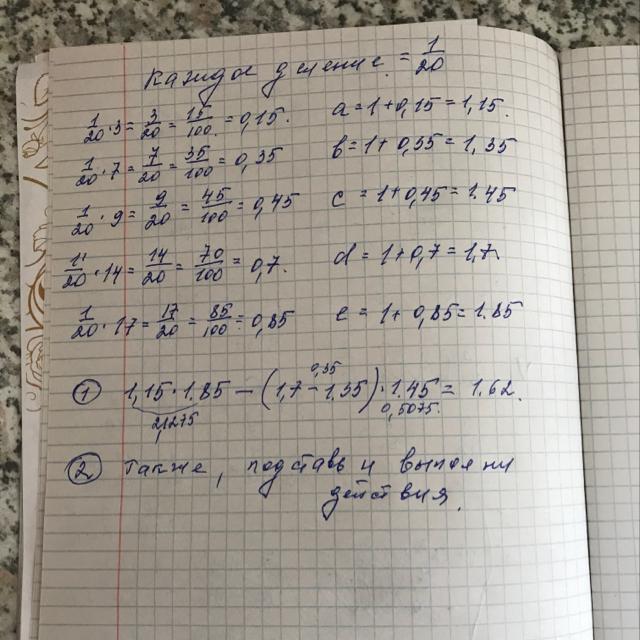 Каждое деление = 1/20
1/20 · 3 = 3/20 = 15/100 = 0,15. a = 1 + 0,15 = 1,15.
1/20 · 7 = 7/20 = 35/100 = 0,35 b = 1 + 0,35 = 1,35
1/20 · 9 = 9/20 = 45/100 = 0,45 c = 1 + 0,45 = 1.45
1/20 · 14 = 14/20 = 70/100 = 0,7. d = 1 + 0,7 = 1,7.
1/20 · 17 = 17/20 = 85/100 = 0,85 e = 1 + 0,85 = 1.85
0,35
① 1,15 · 1.85 − (1,7 − 1,35) · 1.45 = 1.62.
2,1275 0,5075.
② Также, подставь и выполни
действия.